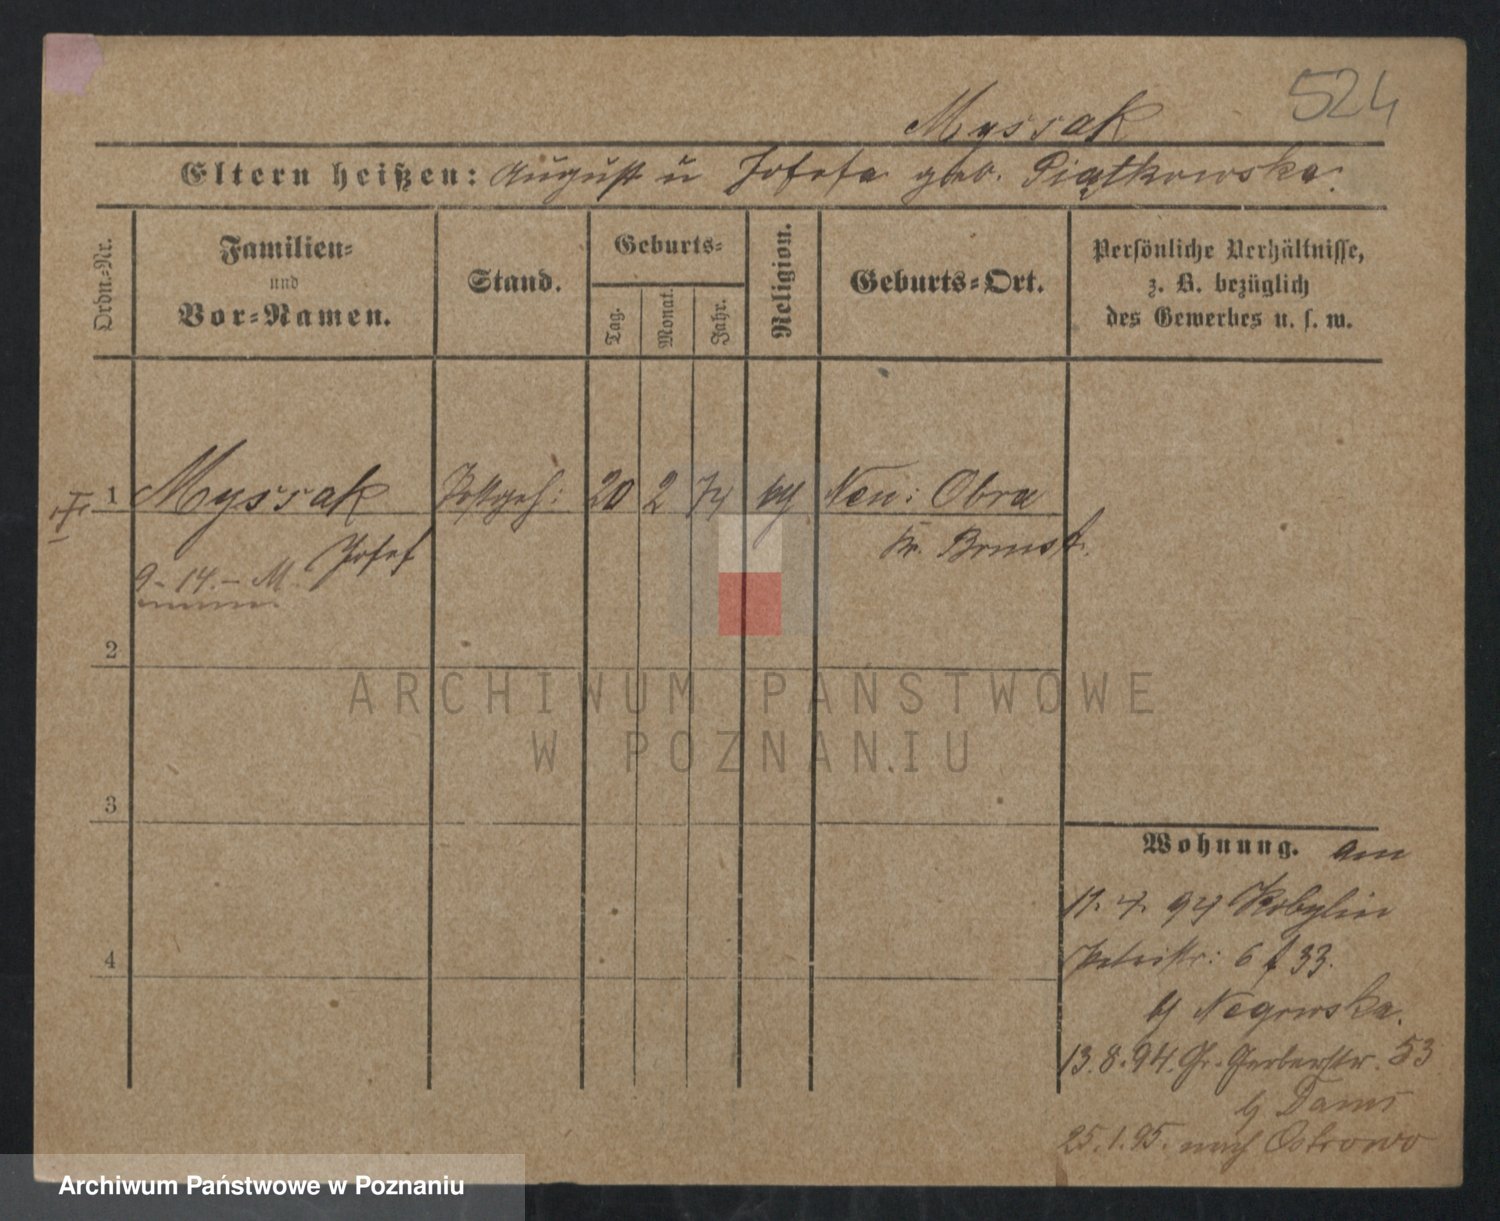 524
Myssak
Eltern heißen: August u Josefa geb. Piątkowska.
Ordn.-Nr.
Familien-
und
Vor-Namen.
Stand.
Geburts-
Tag.
Monat.
Jahr.
Religion.
Geburts-Ort.
Persönliche Verhältnisse,
z. B. bezüglich
des Gewerbes u. s. w.
1 Myssak Postgeh: 20 2 74 Neu: Obra
Josef Kr. Bomst.
9-14.- M.
2
ARCHIWUM PAŃSTWOWE
W POZNANIU
3
Wohnung. am
11. 4. 94 Kobylin
Petristr: 6 33.
b/ Negowska.
13.8.94. Gr. Gerberstr. 53
b/ Dams
4
25.1.95. nach Ostrowo
Archiwum Państwowe w Poznaniu